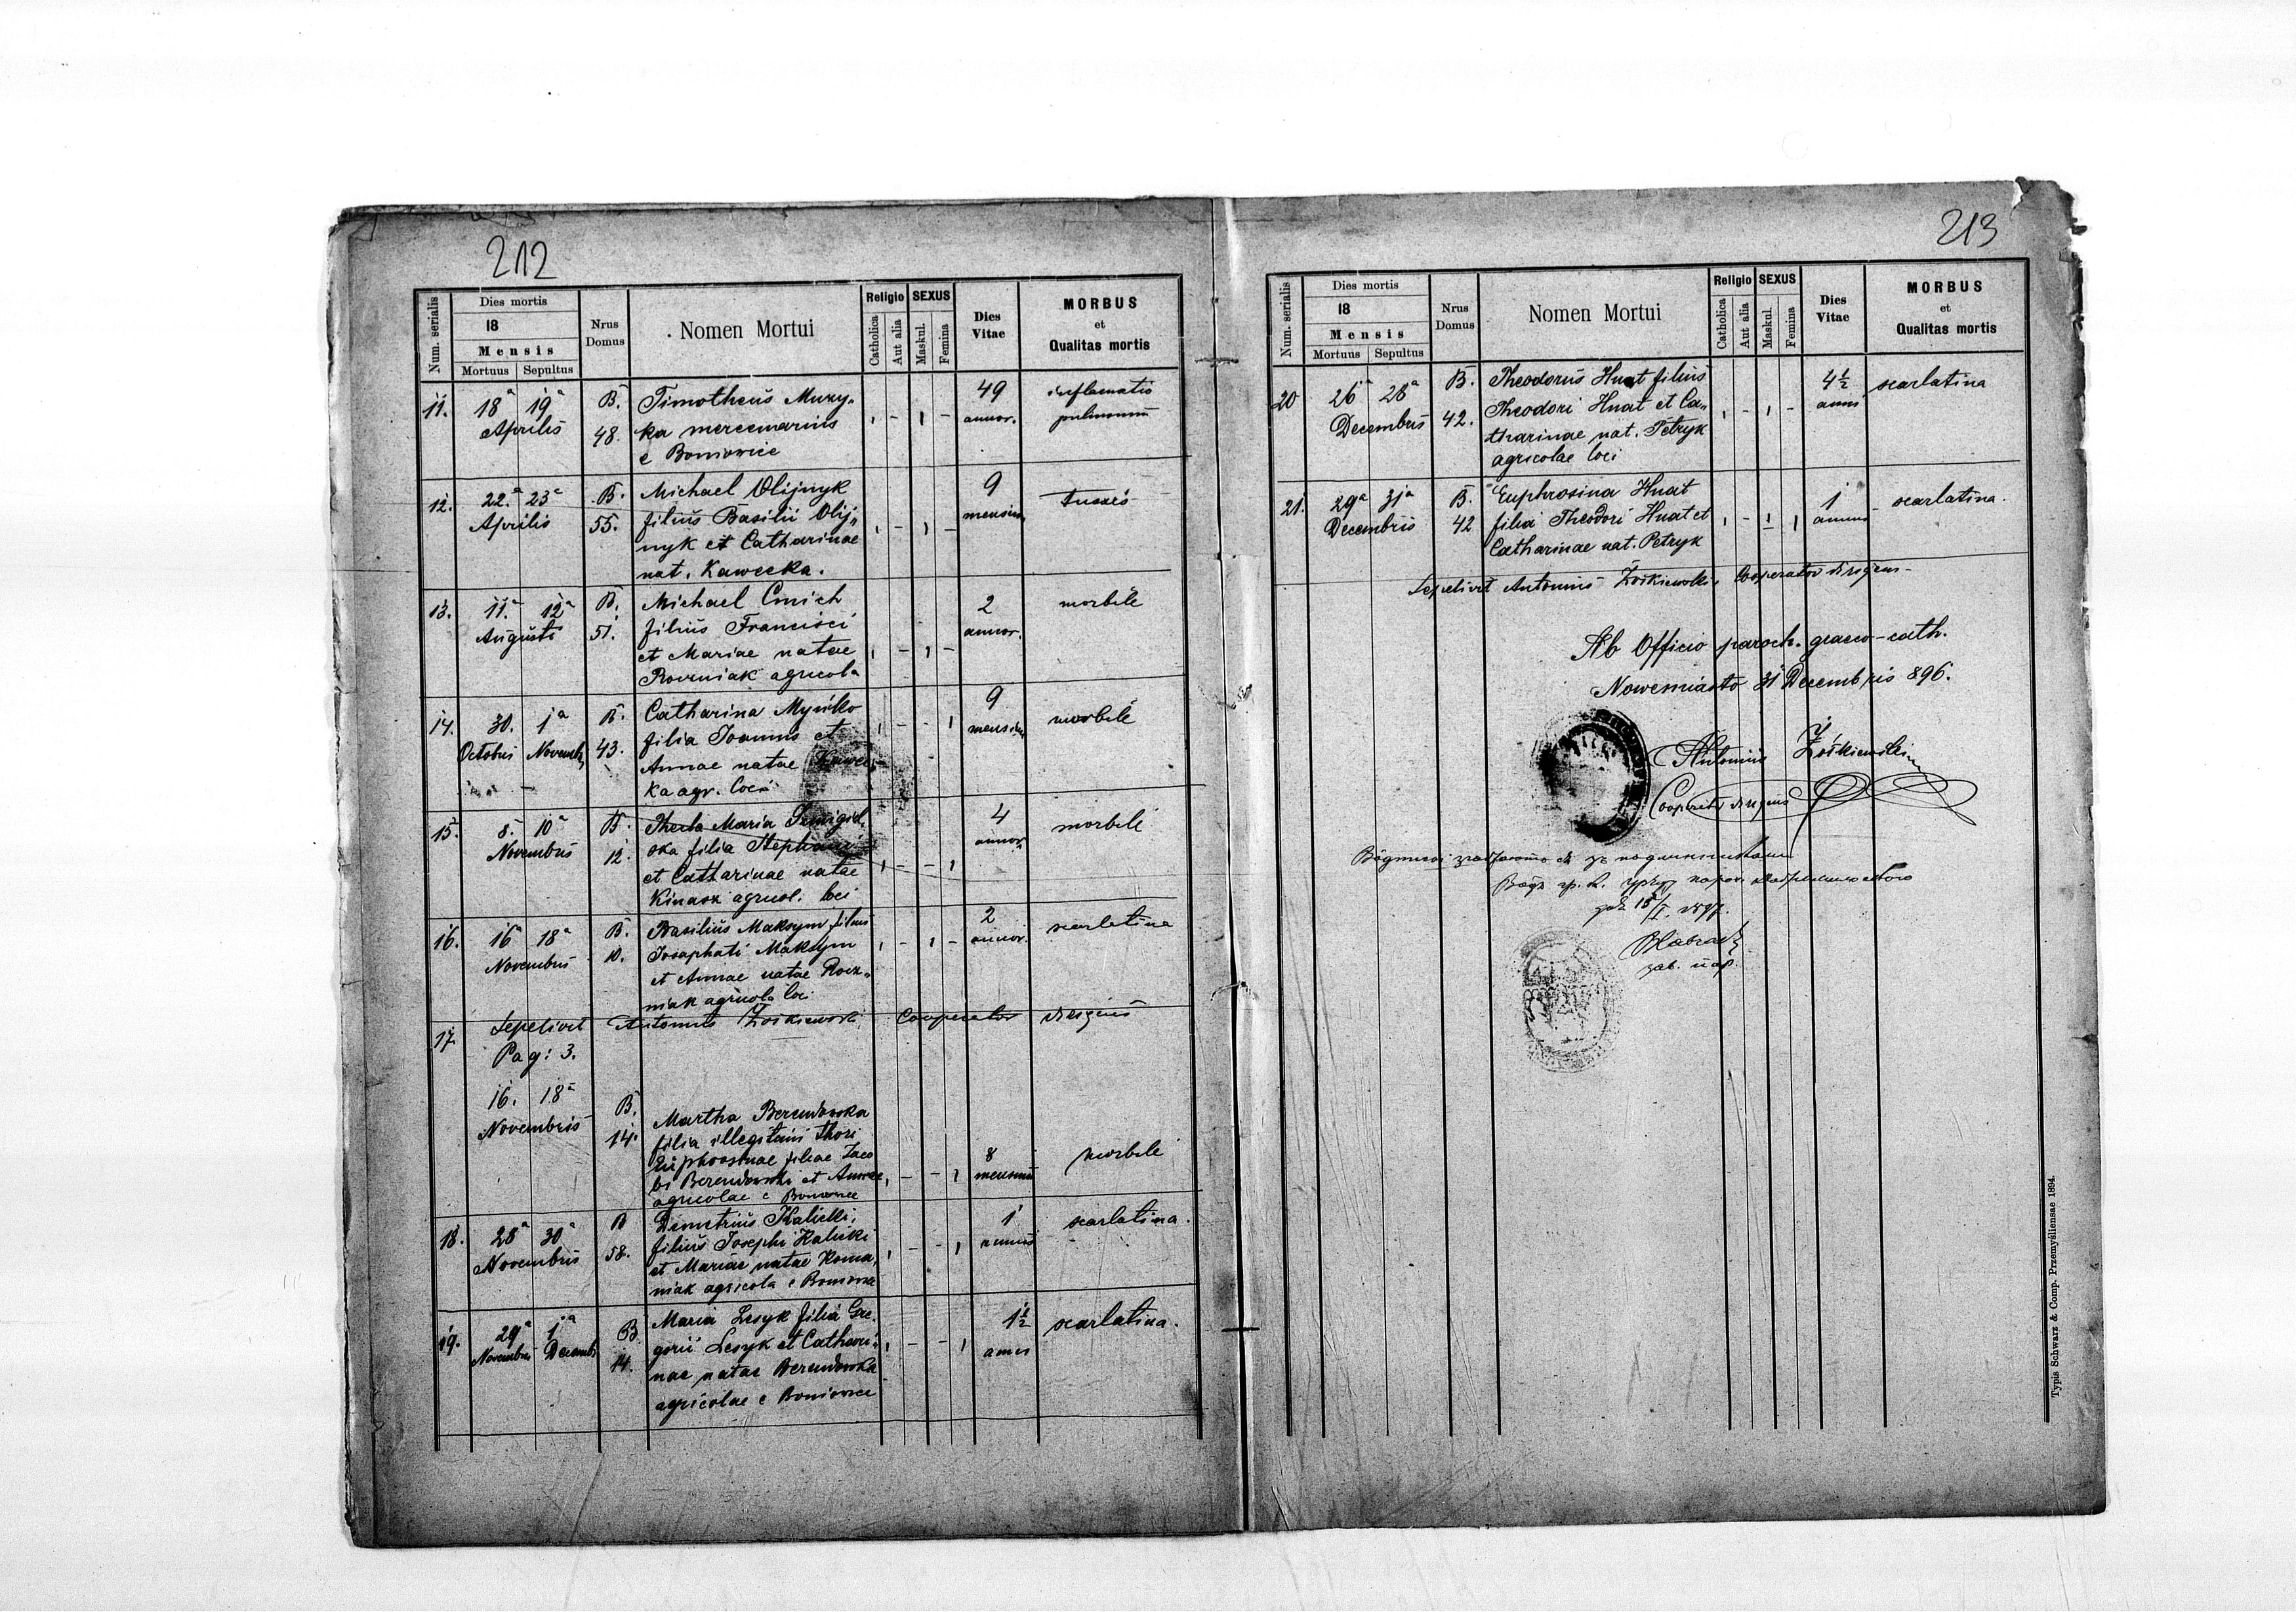 212
Num. serialis
Dies mortis
18
Mensis
Mortuus Sepultus
Nrus Domus
Nomen Mortui
Religio
Catholica
Aut alia
SEXUS
Maskul.
Femina
Dies Vitae
MORBUS
et
Qualitas mortis
11. 18ª 19ª Aprilis B. 48.
Timotheus Muzy„
ka mercenarius
e Boniowice
49 annor.
pulmonum
12. 22.ª 23ª Aprilis B. 55.
Michael Olijnyk
filius Basilii Olij„
nyk et Catharinae
nat. Kawecka.
9 mensium
tussis
13. 11.ª 12ª Augusti B. 51.
Michael Cmich
filius Francisci
et Mariae natae
agricola
2 annor.
morbili
14. 30. 1ª Octobris Novemb. B. 43.
Catharina
filia Joannis et
Annae natae Kawec„
ka agr. loci
9 mensium
morbili
15. 8. 10ª Novembris B. 12.
Thecla Maria
ska filia Stephani
et Catharinae natae
Kinasz agricol. loci
4 annor.
morbili
16. 16ª 18ª Novembris B. 10.
Basilius Maksym filius
Josaphati Maksym
et Annae natae
niak agricola loci
2 annor.
scarlatina
17. Sepelivit Antonius Zośkiewski Cooperator dirigens
Pag: 3.
16. 18ª Novembris B. 14.
Martha Berendowska
filia illegitimi thori
Euphrosinae filiae Jaco
bi Berendowski et Annae
agricolae e Boniowice
8 mensium
morbili
18. 28ª 30ª Novembris B 58.
Demetrius Kalicki,
filius Josephi Kalicki
et Mariae natae Roma„
niak agricola e Boniowice
1 annus
scarlatina.
19. 29ª 1ª Novembris Decemb. B. 14.
Maria Lesyk filia Gre„
gorii Lesyk et Cathari„
nae natae Berendowska
agricolae e Boniowice
1½ annus
scarlatina.
213
Num. serialis
Dies mortis
18
Mensis
Mortuus Sepultus
Nrus Domus
Nomen Mortui
Religio
Catholica
Aut alia
SEXUS
Maskul.
Femina
Dies Vitae
MORBUS
et
Qualitas mortis
20 26ª 28ª Decembris B. 42.
Theodorus Hnat filius
Theodori Hnat et Ca„
tharinae nat. Petryk
agricolae loci
4½ anni
scarlatina
21. 29ª 31ª Decembris B. 42
Euphrosina Hnat
filia Theodori Hnat et
Catharinae nat. Petryk
1 annus
scarlatina.
Sepelivit Antonius Zośkiewski, Cooperator dirigens
Ab Officio paroch. graeco-cath.
Nowemiasto 31 Decembris 896.
Antonius Zośkiewski
Cooperator dirigens
зав. пар.
Typis Schwarz & Comp. Przemysliensae 1894.